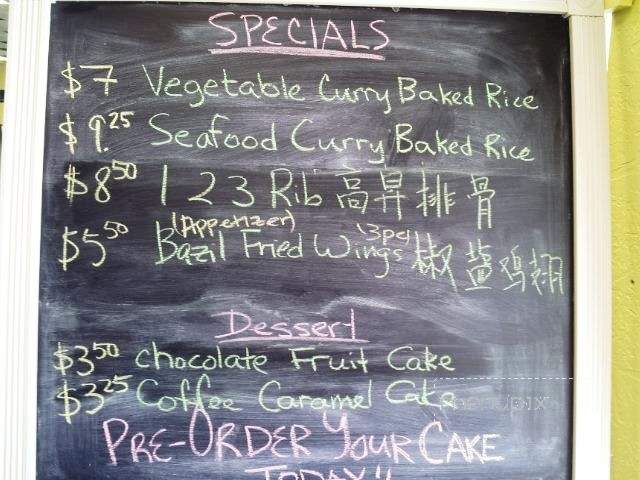 SPECIALS
$7 Vegetable Curry Baked Rice
$9.25 Seafood Curry Baked Rice
$8.50 1 2 3 Rib 高昇排骨
(Appetizer) (3pc)
$5.50 Bazil Fried Wings 椒鹽鸡翅
Dessert
$3.50 chocolate Fruit Cake
$3.25 Coffee Caramel Cake
PRE-ORDER YOUR CAKE
TODAY!!
menupix